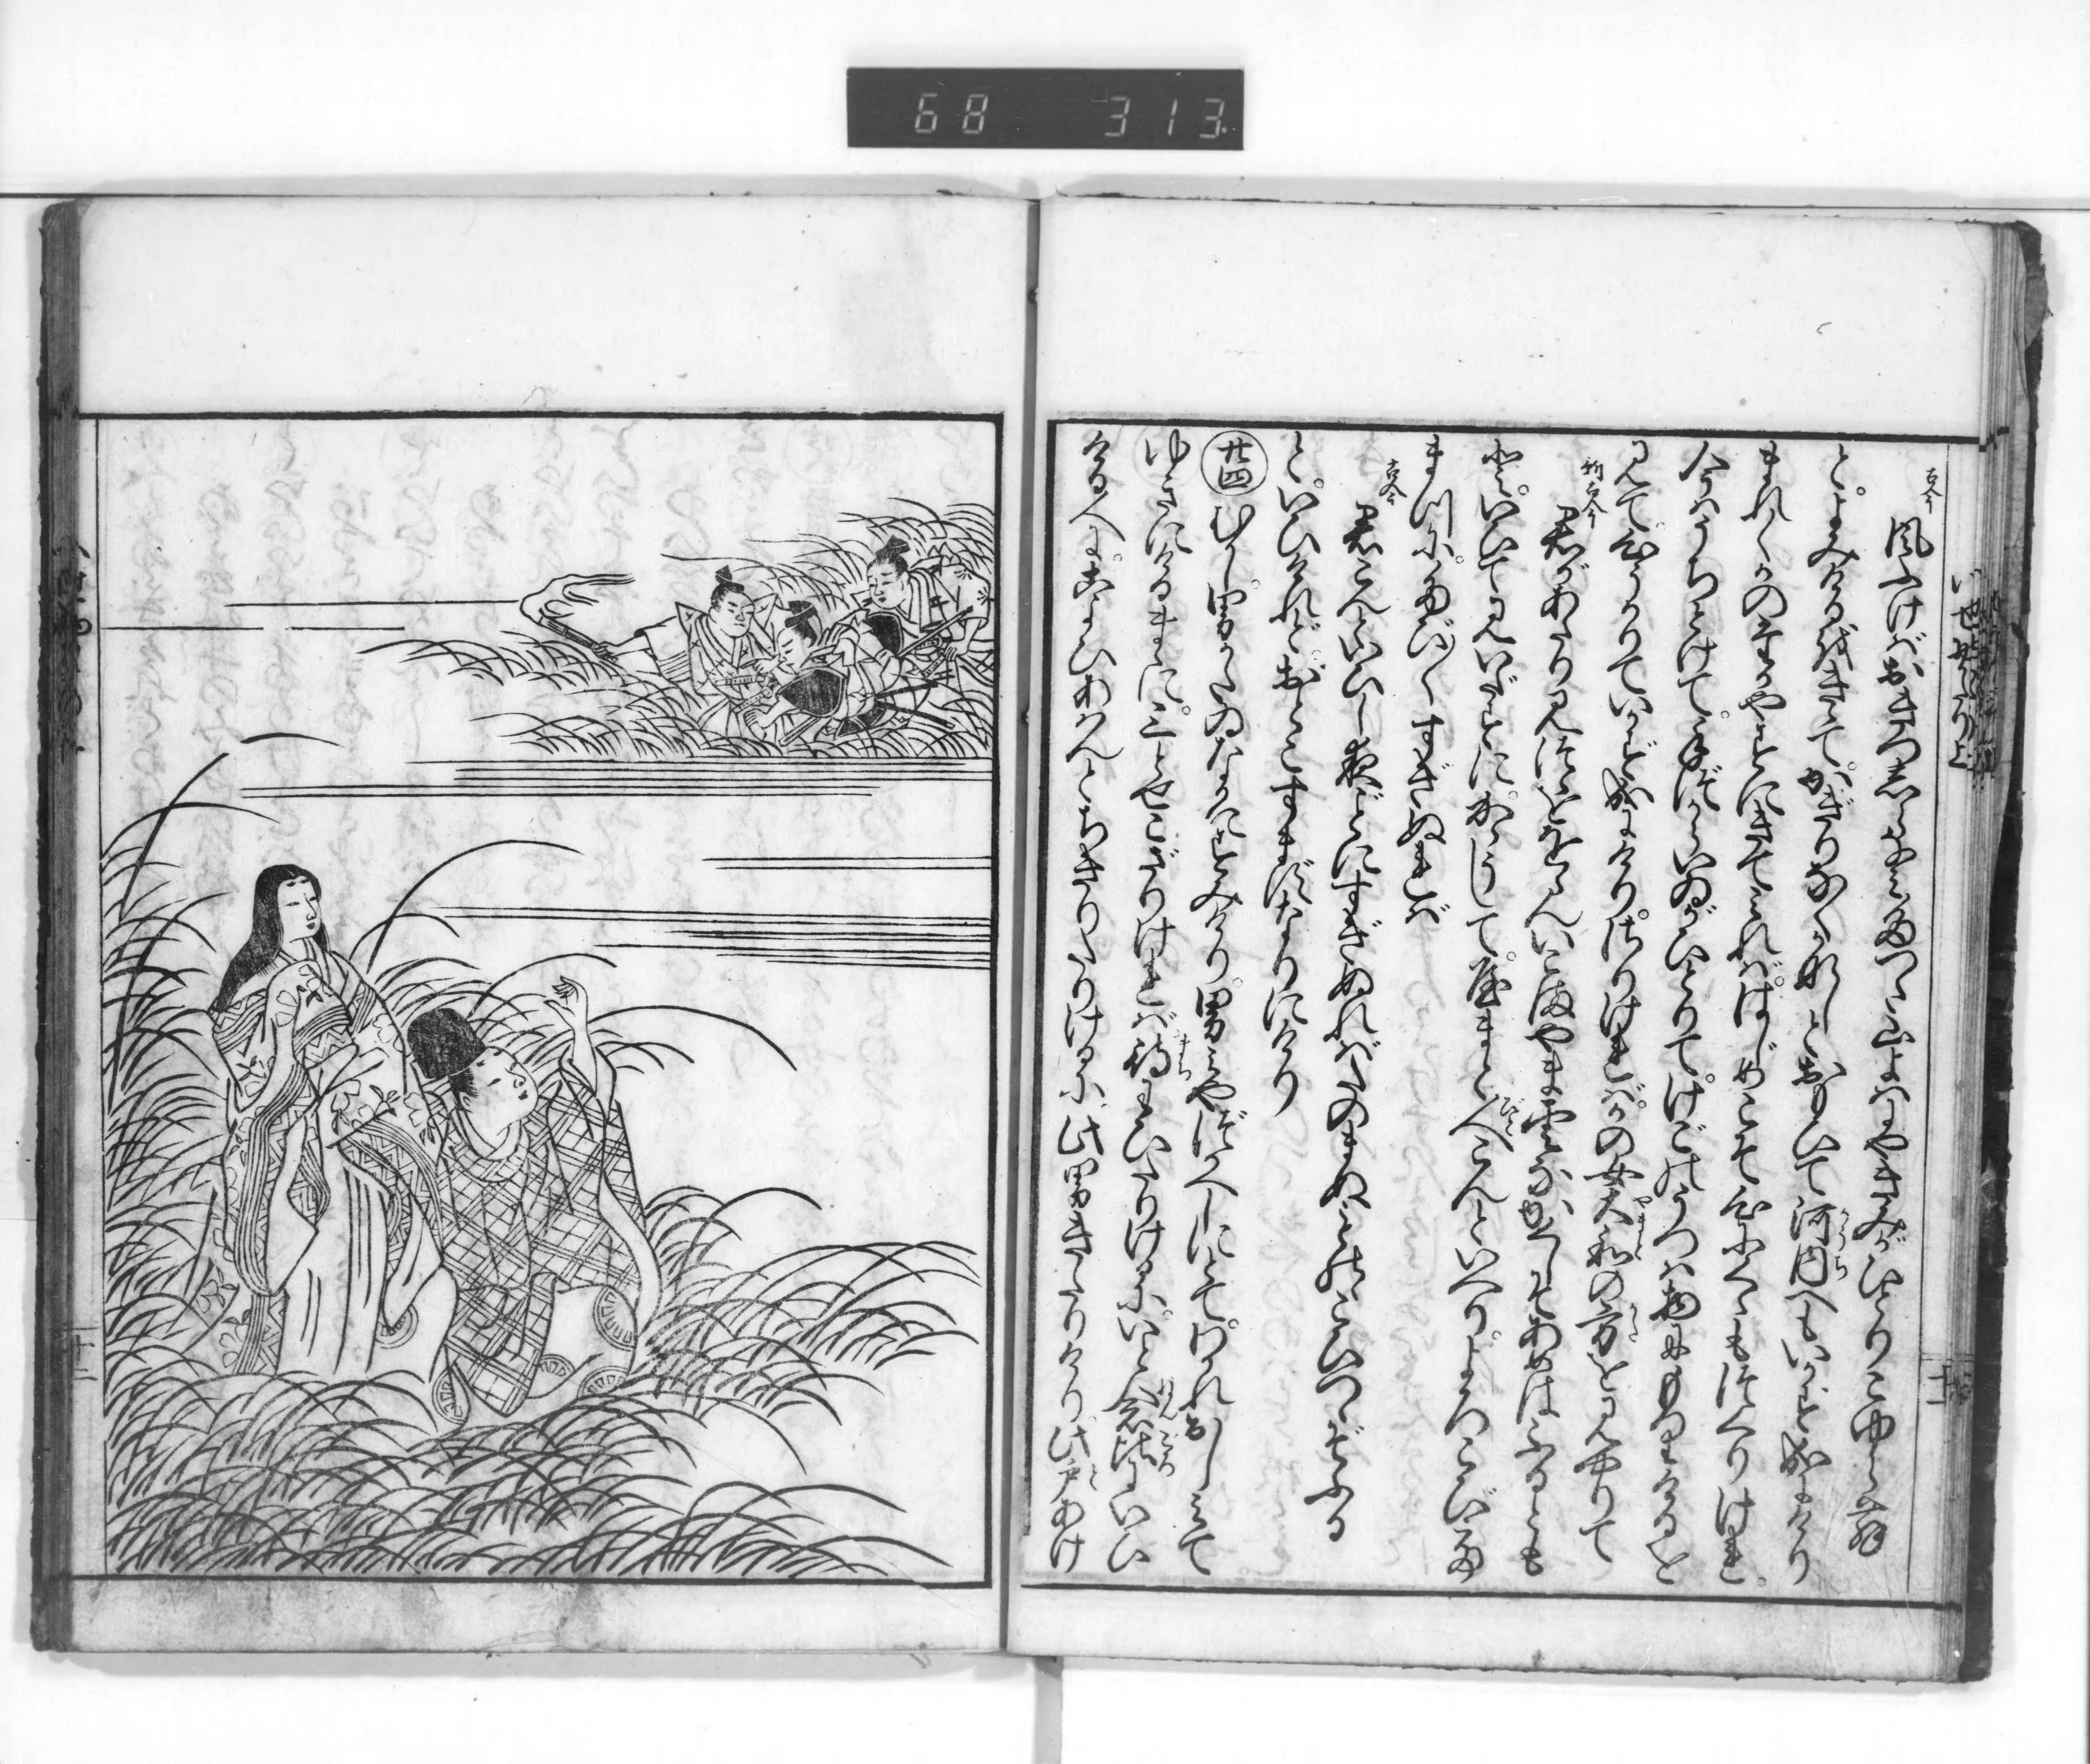 68 313
いせ物がたり上
十一
古今
風ふけばおきつしらなみたつた山よはにやきみがひとりこゆらん
とよみけるをきゝてかぎりなくかなしとおもひて河内へもいかずなりにけり
かうち
まれ〳〵かのたかやすにきて見ればはじめこそ心にくゝもつくりけれ
今はうちとけて手づからいゐがひとりてけごのうつは物にもりけるを
見て心うがりていかずなりにけりさりければかの女大和の方を見やりて
やまと
かた
新古今
君があたり見つゝををらんいこま山雲なかくしそあめはふるとも
といひて見いだすにからうじてやまと人こんといへりよろこびて
びと
まつにたび〳〵すぎぬれば
古今
君こんといひし夜ごとにすぎぬればたのまぬものゝこひつゝぞふる
といひけれどおとこすまずなりにけり
廿四
むかし男かたゐなかにすみけり男みやづかへしにとてわかれおしみて
ゆきにけるまゝに三とせこざりければ待わびたりけるにいと念比にいひ
まち
ねんごろ
ける人にこよひあはんとちぎりたりけるに此男きたりけり此戸あけ
と
十二